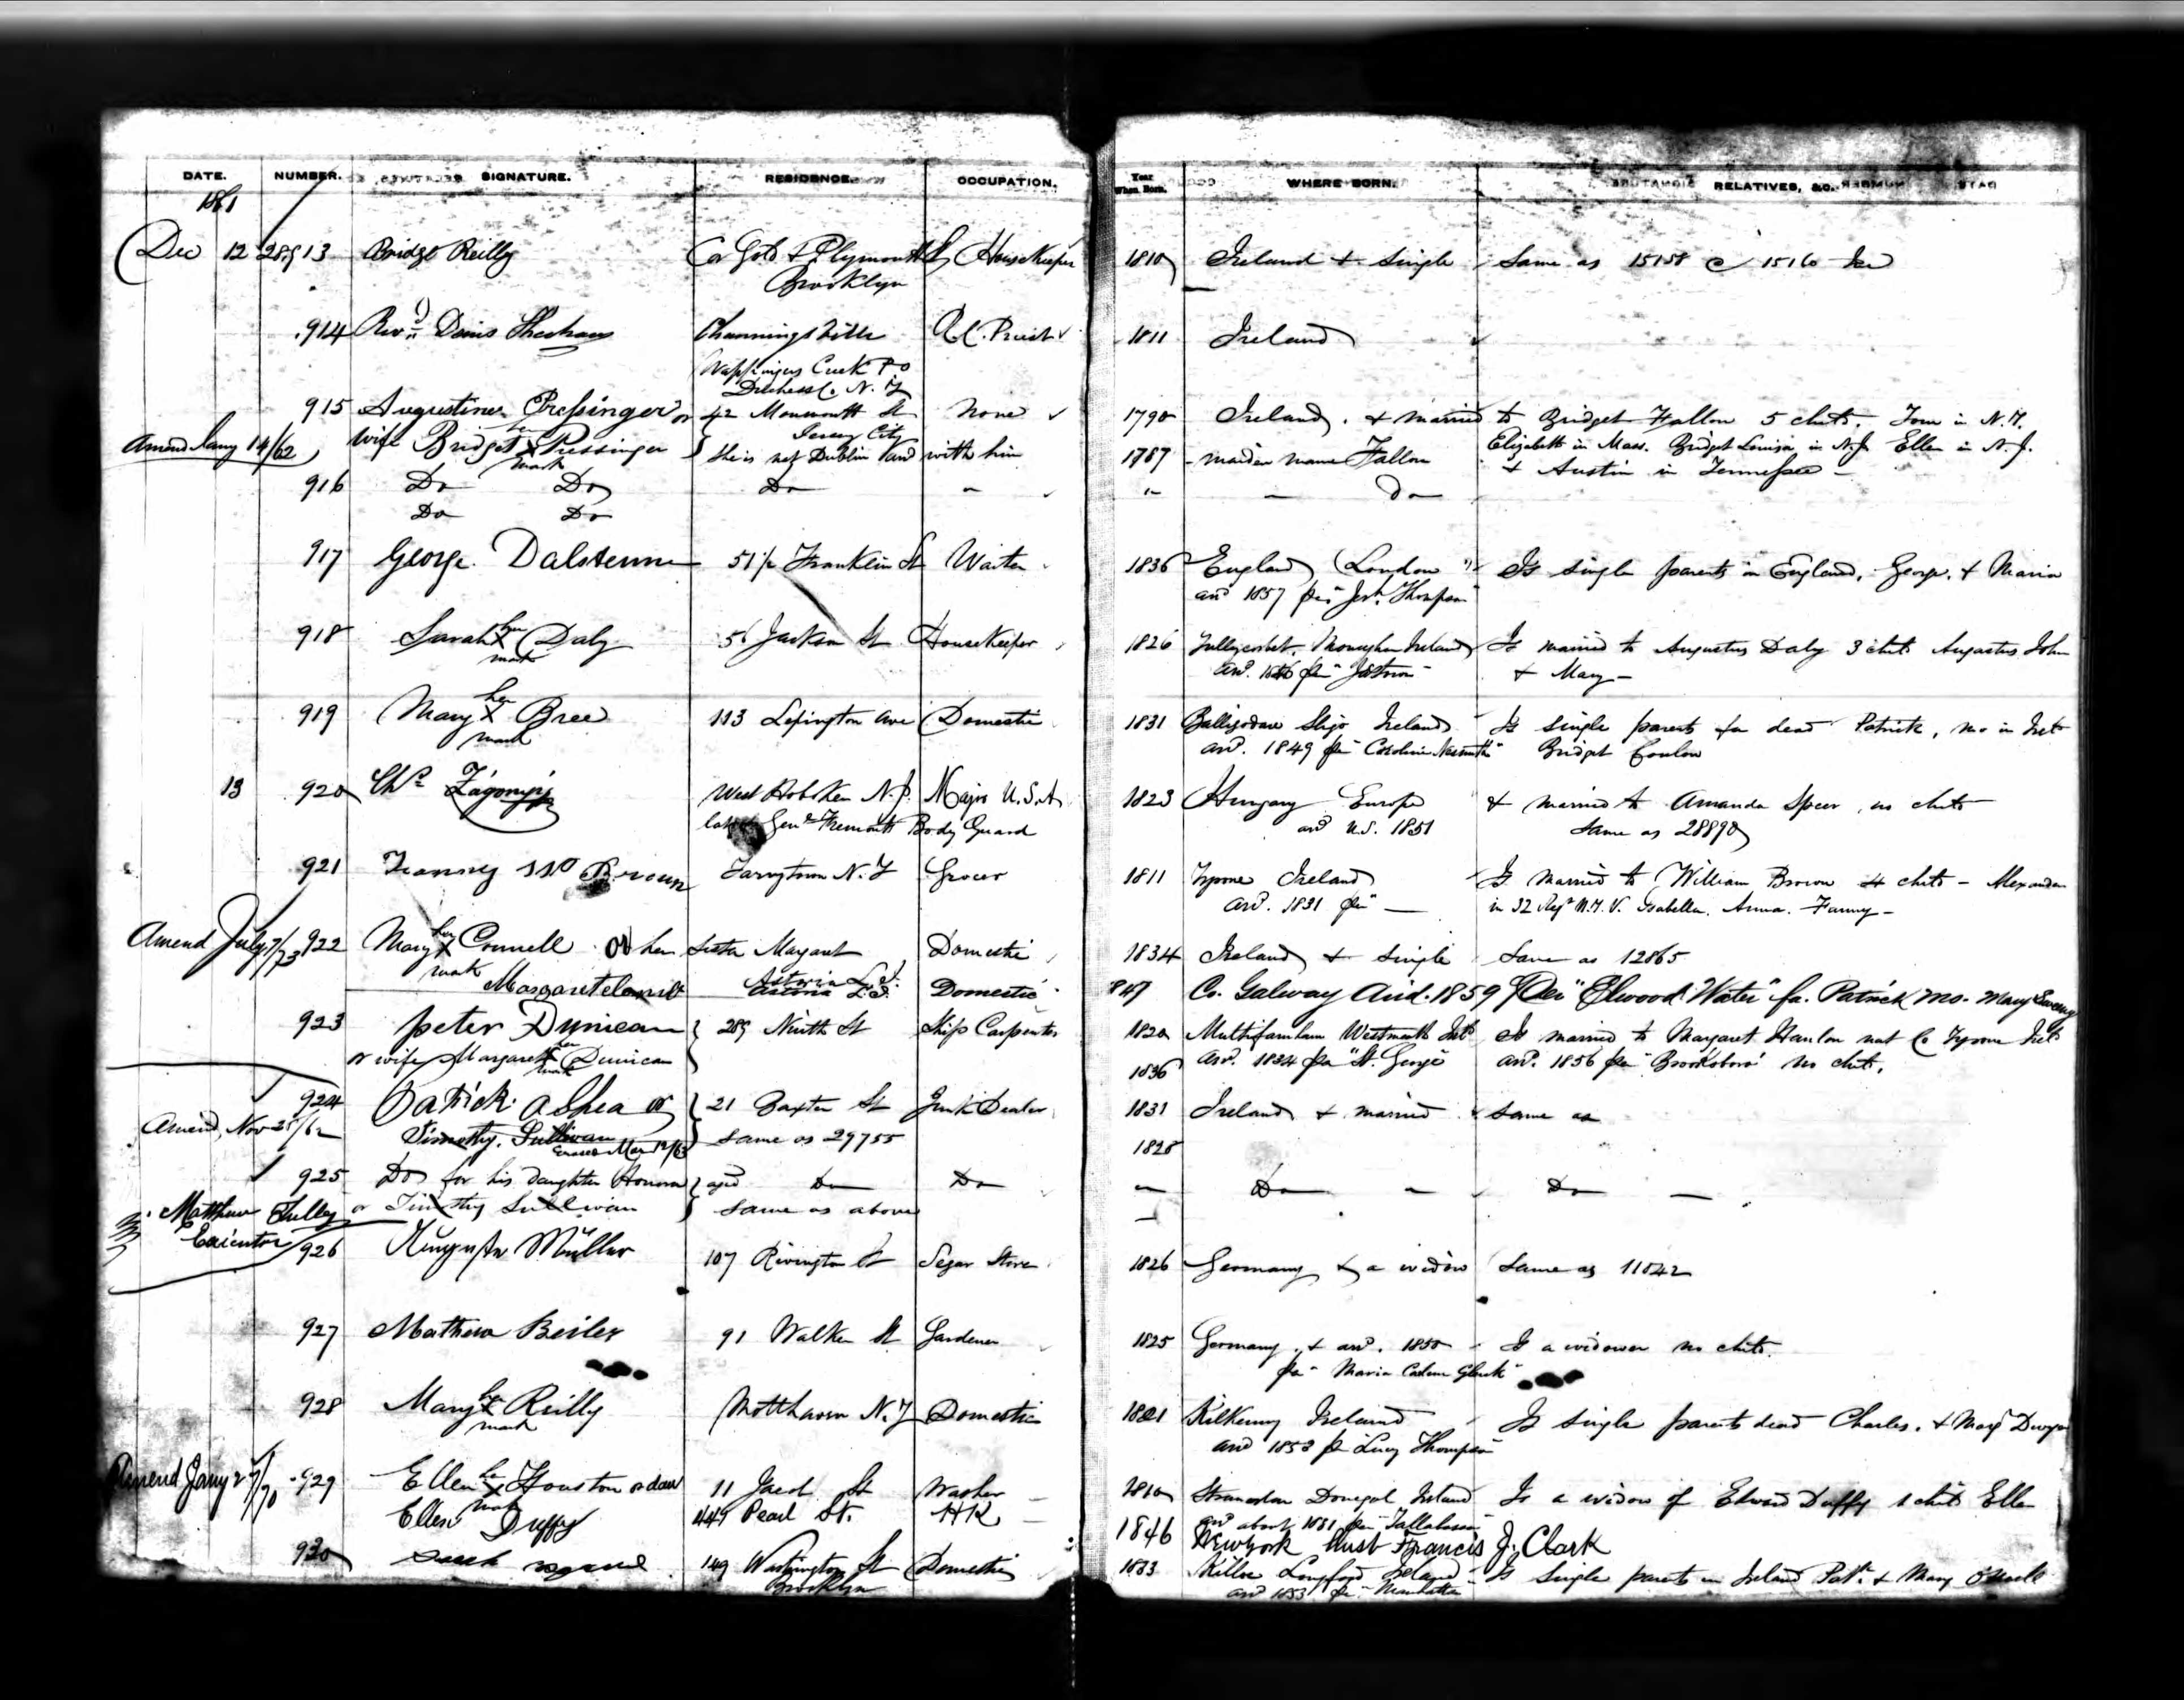 DATE. NUMBER. SIGNATURE. RESIDENCE. OCCUPATION. Year When Born. WHERE BORN. RELATIVES, &C.
1861
Dec 12 28913 Bridget Reilly Cor Gold & Plymouth St Housekeeper 1810 Ireland & single Same as 15158 & 15160
Brooklyn
914 Revd Denis Sheehan Channingsville R.C. Priest 1811 Ireland
Wappingers Creek P.O
Dutchess Co N.Y
915 Augustine Pressinger or 42 Monmouth St None 1790 Ireland & married to Bridget Fallon 5 chdn. Tom in N.Y.
Jersey City
Amend Jany 14/62 wife Bridget her X mark Pressinger She is nat Dublin and with him 1787 maiden name Fallon Elizabeth in Mass. Bridget Louisa in N.J. Ellen in N.J.
& Austin in Tennessee
916 Do Do Do " " " Do
Do Do
917 George Dalstenne 51½ Franklin St Waiter 1836 England (London) Is single parents in England, George & Maria
arrd 1857 per "Jerh Thompson"
918 Sarah her X mark Daly 56 Jackson St Housekeeper 1826 Tullycorbet, Monaghan Ireland Is married to Augustus Daly 3 chdn Augustus John
& Mary
919 Mary her X mark Bree 113 Lexington Ave Domestic 1831 Ballisodare Sligo Ireland Is single parents fa dead Patrick, mo in Irel
arrd. 1849 per "Caroline Nesmith" Bridget Conlon
13 920 Chs Zagonyi West Hoboken N.J. Major U.S.A 1823 Hungary Europe & married to Amanda Speer, no chdn
late Genl Fremonts Body Guard arrd U.S. 1851 Same as 28890
921 Fanny Brown Tarrytown N.Y Grocer 1811 Tyrone Ireland Is married to William Brown 4 chdn - Alexander
arrd. 1831 per — in 32 Regt N.Y.V. Isabella. Anna. Fanny
Amend July 7/73 922 Mary her X mark Connell or her sister Margaret Domestic 1834 Ireland & single Same as 12865
Astoria L.I.
Margaret Astoria L.I. Domestic 1847 Co. Galway Arrd. 1859 Per "Elwood Water" fa. Patrick mo. Mary Sweeny
923 Peter Dunican 289 Ninth St Ship Carpenter 1820 Multifarnham Westmeath Ireld Is married to Margaret Hanlon nat Co Tyrone Ireld
or wife Margaret her X mark Dunican 1836 arrd. 1834 per "St. George" arrd. 1856 per "Brooksboro" no chdn.
924 Patrick O Shea or 21 Baxter St Junk Dealer 1831 Ireland & married Same as
Amend, Nov 25/62 Timothy Sullivan Same as 29755 1828
925 Do for his daughter Honora aged Do Do Do Do
Matthew Tulley or Timothy Sullivan same as above
Executor
926 Auguste Müller 107 Rivington St Segar Store 1826 Germany & a widow Same as 11842
927 Mathew Beiler 91 Walker St Gardener 1825 Germany & arrd. 1850 Is a widower no chdn.
per "Maria
928 Mary her X mark Reilly Motthaven N.Y Domestic 1821 Kilkenny Ireland Is single parents dead Charles, & Mary Dwyer
arrd 1853 per "Lucy Thompson"
Amend Jany 27/70 929 Ellen her X mark Houston or daur 11 Jacob St Washer 1810 Donegal Ireland Is a widow of Edward Duffy 1 chdn Ellen
arrd about 1851 per "Tallahassee"
Ellen Duffy 449 Pearl St. H.K. 1846 New York Husb Francis J. Clark
930 149 Washington St Domestic 1833 Killoe Longford Ireland Is single parents in Ireland Patk & Mary
Brooklyn arrd 1853 per "Manhattan"